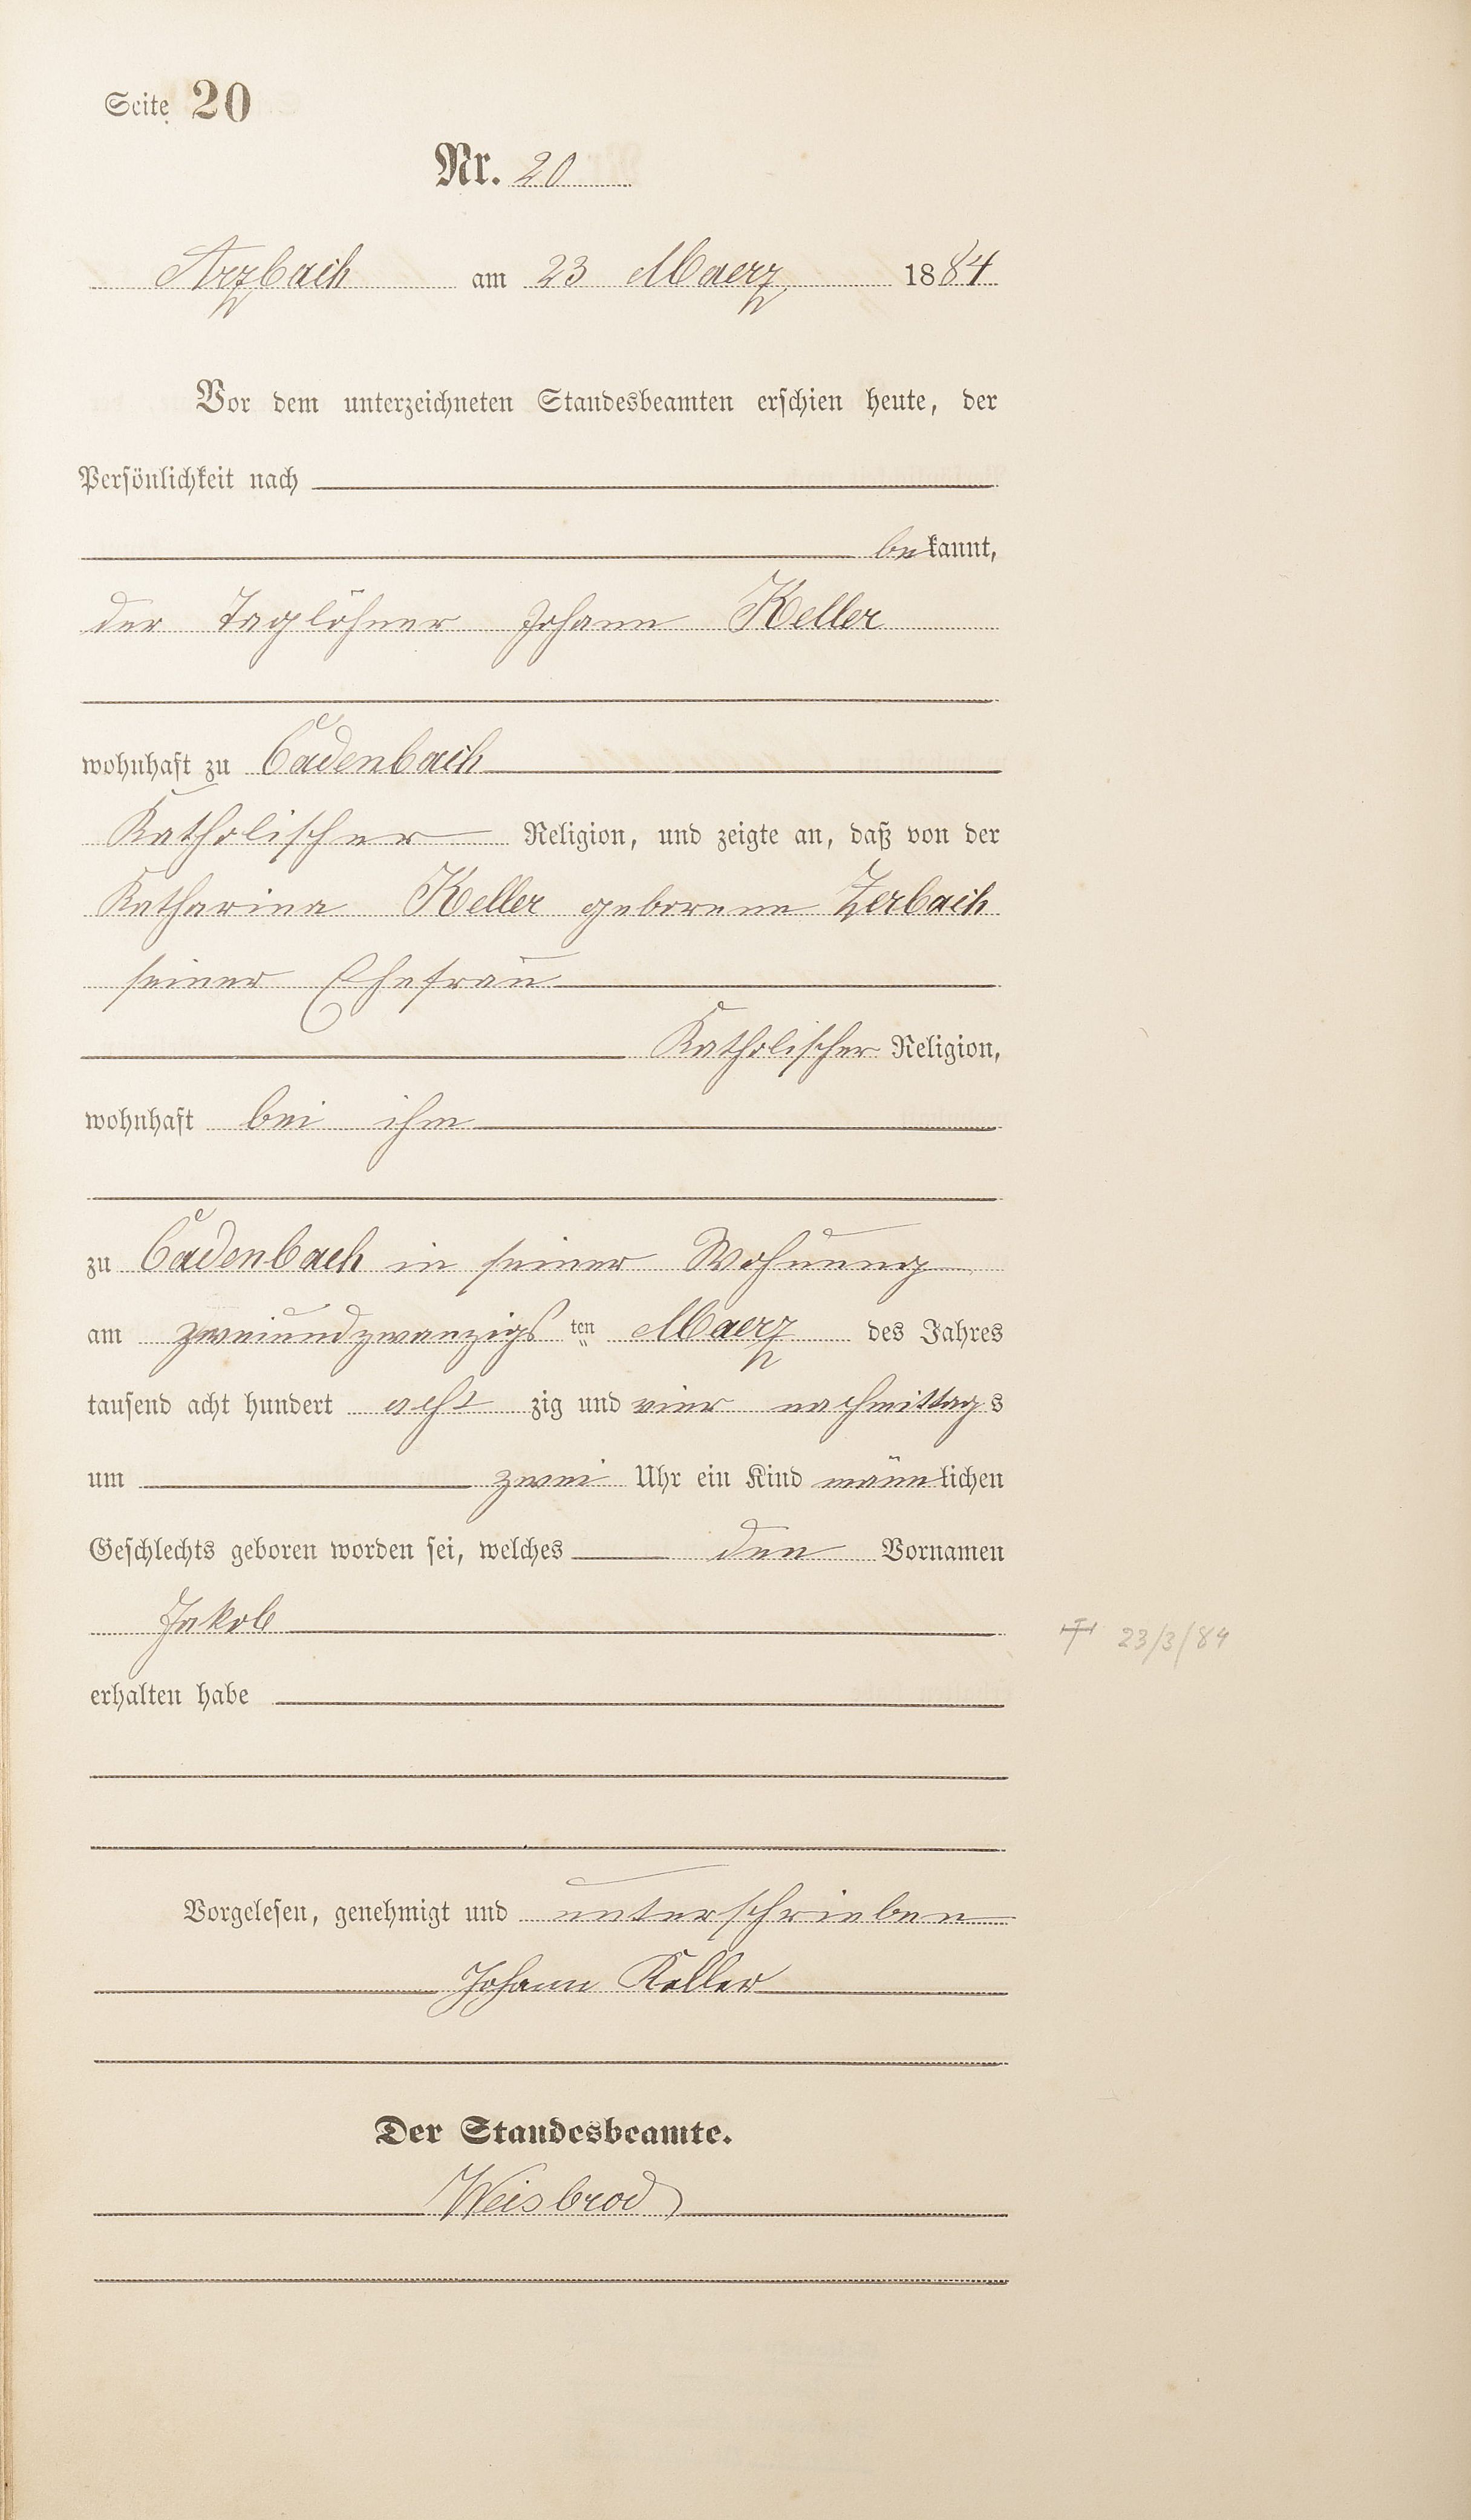 Seite 20
Nr. 20
Arzbach am 23 Maerz 1884
Vor dem unterzeichneten Standesbeamten erschien heute, der
Persönlichkeit nach
bekannt,
der Taglöhner Johann Keller
wohnhaft zu Cadenbach
Katholischer Religion, und zeigte an, daß von der
Katharina Keller geborene Zerbach
seiner Ehefrau
Katholischer Religion,
wohnhaft bei ihm
zu Cadenbach in seiner Wohnung
am zweiundzwanzigsten Maerz des Jahres
tausend acht hundert achtzig und vier nachmittags
um zwei Uhr ein Kind männlichen
Geschlechts geboren worden sei, welches den Vornamen
Jakob
† 23/3/84
erhalten habe
Vorgelesen, genehmigt und unterschrieben
Johann Keller
Der Standesbeamte.
Weisbrod